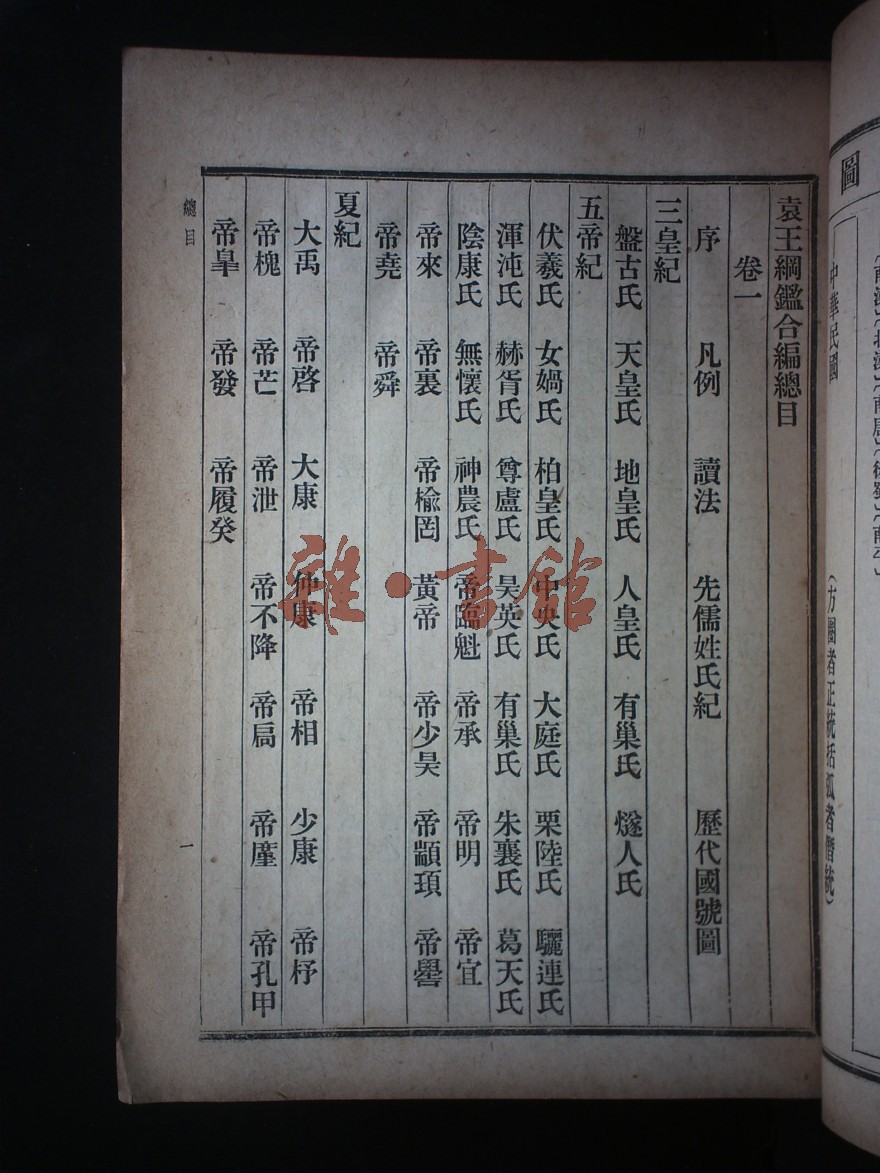 圖
中華民國
(方圈者正統括弧者僭統)
袁王綱鑑合編總目
卷一
序 凡例 讀法 先儒姓氏紀 歷代國號圖
三皇紀
盤古氏 天皇氏 地皇氏 人皇氏 有巢氏 燧人氏
五帝紀
伏羲氏 女媧氏 柏皇氏 中央氏 大庭氏 栗陸氏 驪連氏
渾沌氏 赫胥氏 尊盧氏 昊英氏 有巢氏 朱襄氏 葛天氏
陰康氏 無懷氏 神農氏 帝臨魁 帝承 帝明 帝宜
帝來 帝裏 帝楡罔 黃帝 帝少昊 帝顓頊 帝嚳
帝堯 帝舜
夏紀
大禹 帝啓 大康 仲康 帝相 少康 帝杼
帝槐 帝芒 帝泄 帝不降 帝扃 帝廑 帝孔甲
帝皐 帝發 帝履癸
總目
一
雜·書館